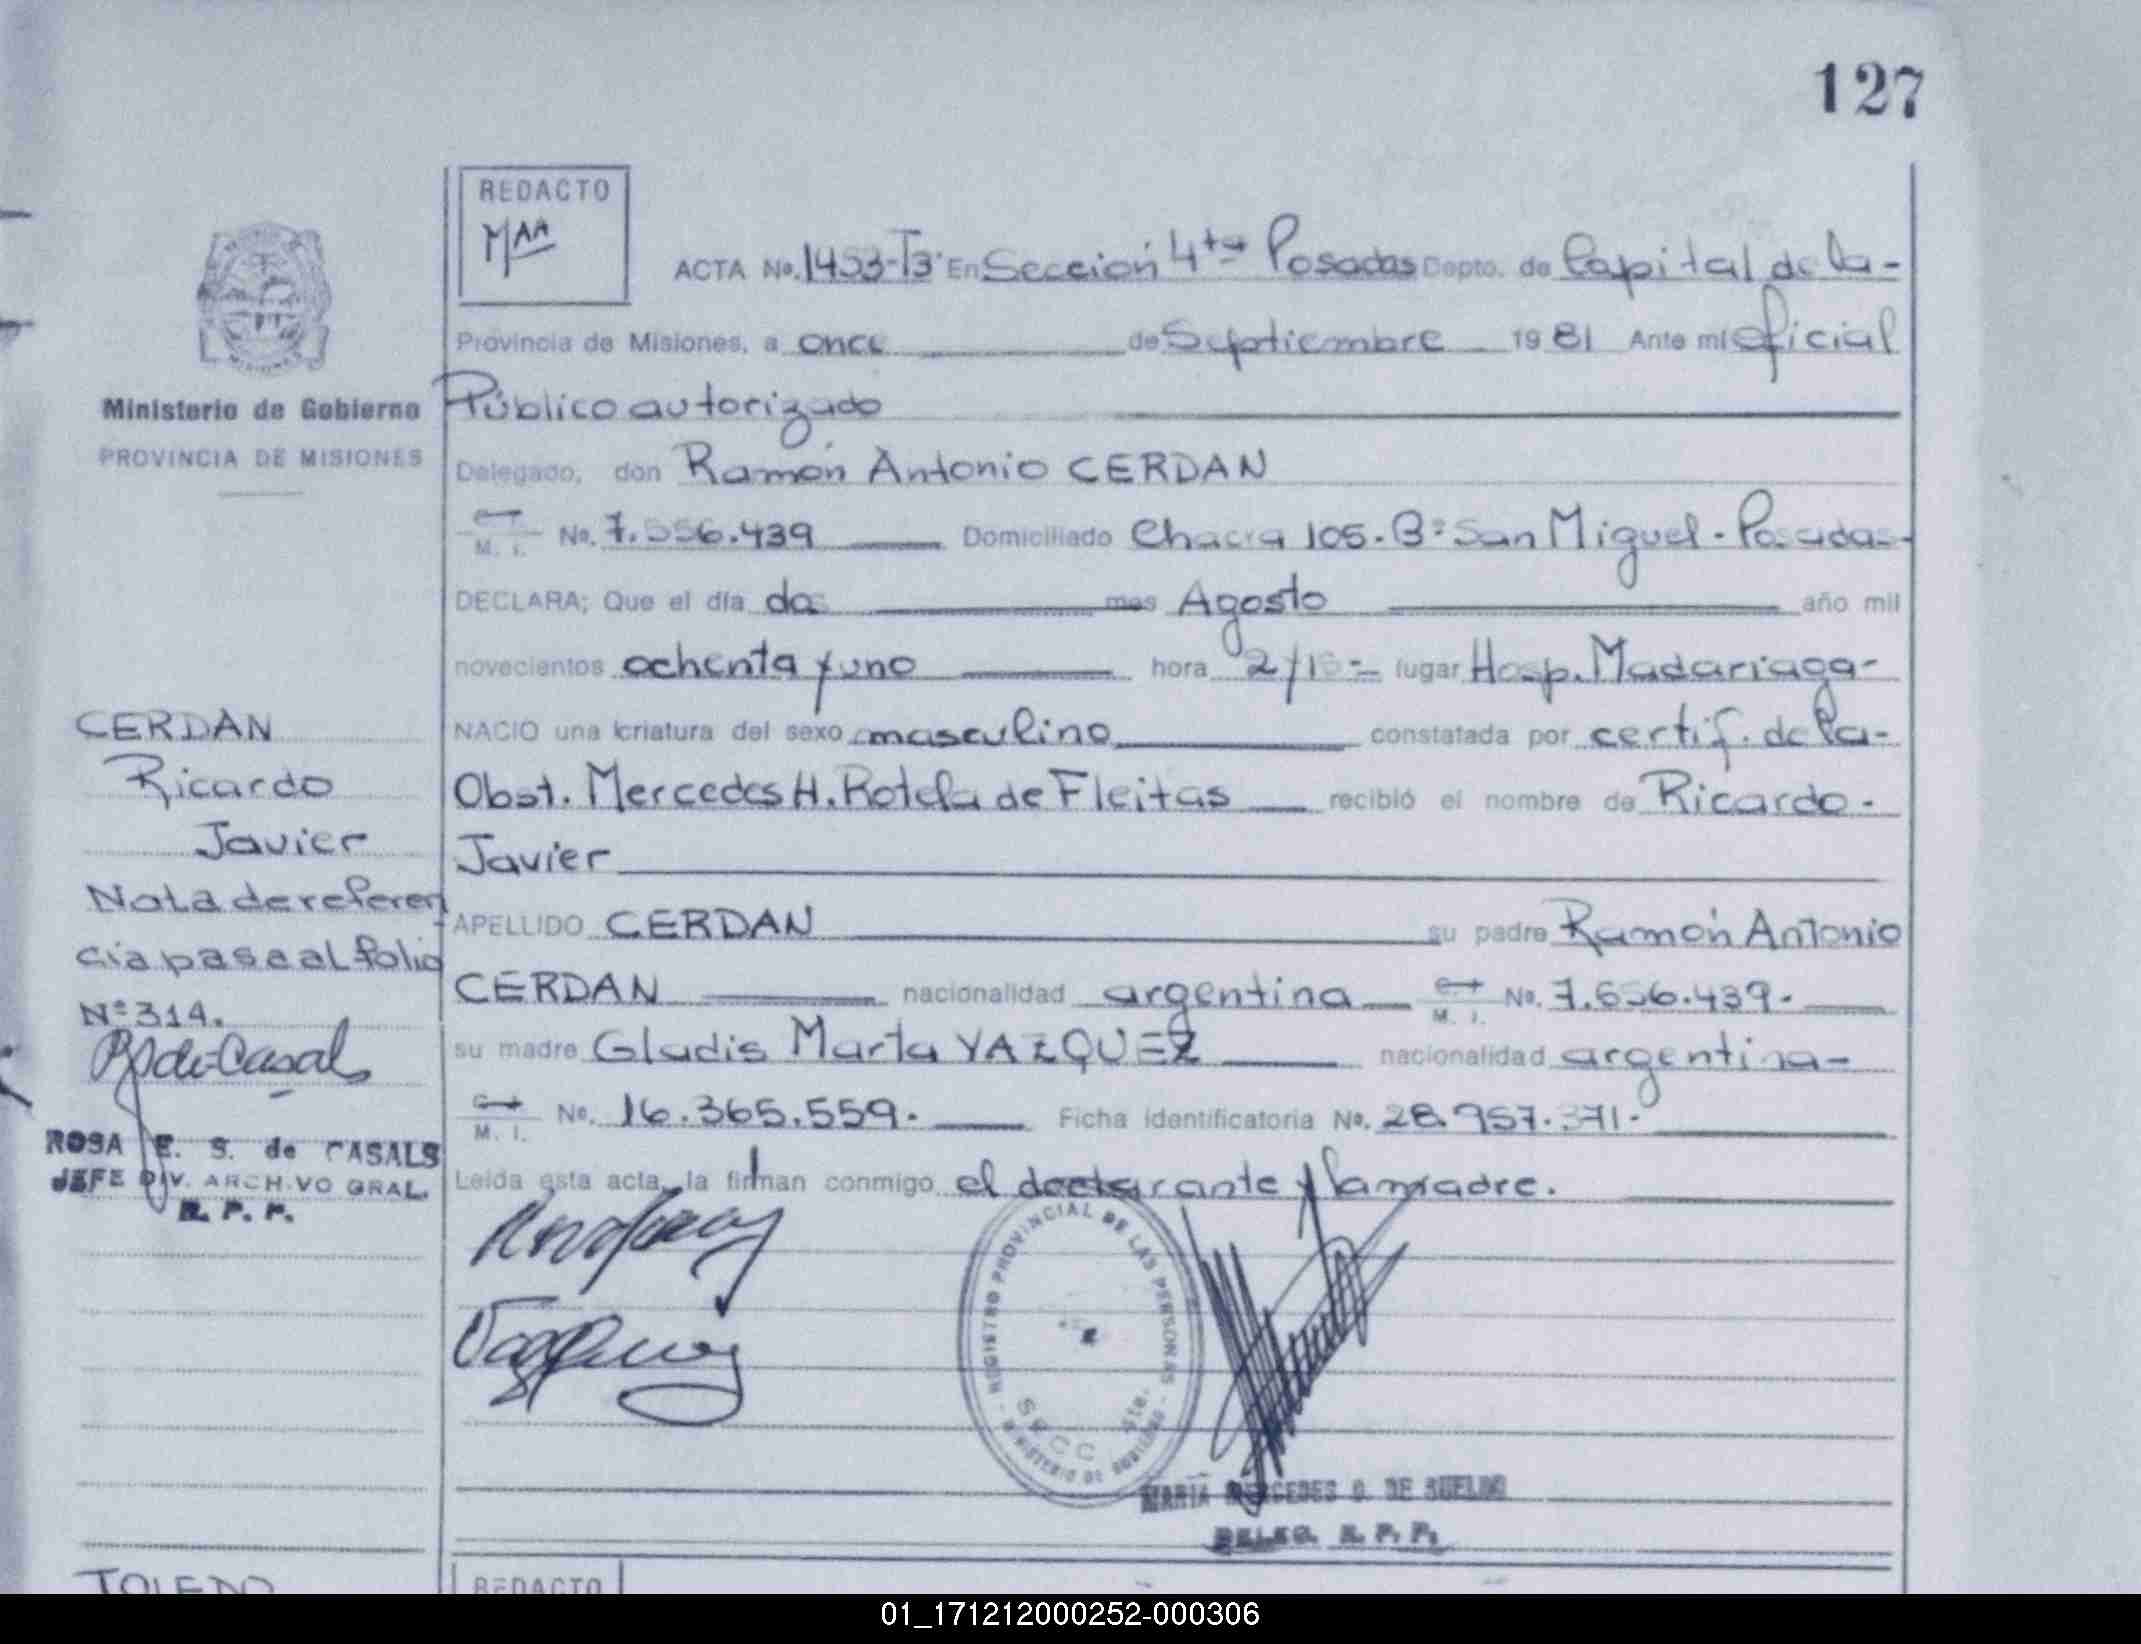 127
REDACTO
Maa
ACTA No. 1453-T3º En Sección 4ta Posadas Depto. de Capital de la-
Provincia de Misiones, a once de Septiembre 1981 Ante mi oficial
Público autorizado
Delegado, don Ramón Antonio CERDAN
M. I. No. 7.556.439 Domiciliado Chacra 105-Bº San Miguel-Posadas-
DECLARA; Que el día dos mes Agosto año mil
novecientos ochenta y uno hora 2/15- lugar Hosp. Madariaga-
NACIO una criatura del sexo masculino constatada por certif. de la-
Obst. Mercedes H. Rotela de Fleitas recibió el nombre de Ricardo-
Javier
APELLIDO CERDAN su padre Ramón Antonio
CERDAN nacionalidad argentina M. I. No. 7.656.439-
su madre Gladis Marta VAZQUEZ nacionalidad argentina-
M. I. No. 16.365.559- Ficha identificatoria No. 28.957.371-
Leida esta acta, la firman conmigo el declarante y la madre.
MISIONES
Ministerio de Gobierno
PROVINCIA DE MISIONES
CERDAN
Ricardo
Javier
Nota de referen
cia pase al folio
Nº 314.
RSdeCasals
ROSA E. S. de CASALS
JEFE DIV. ARCHIVO GRAL.
R. P. P.
REGISTRO PROVINCIAL DE LAS PERSONAS
SECC 4ta.
MINISTERIO DE GOBIERNO
MARIA MERCEDES G. DE SUELDO
DELEG. R. P. P.
TOLEDO
REDACTO
01_171212000252-000306